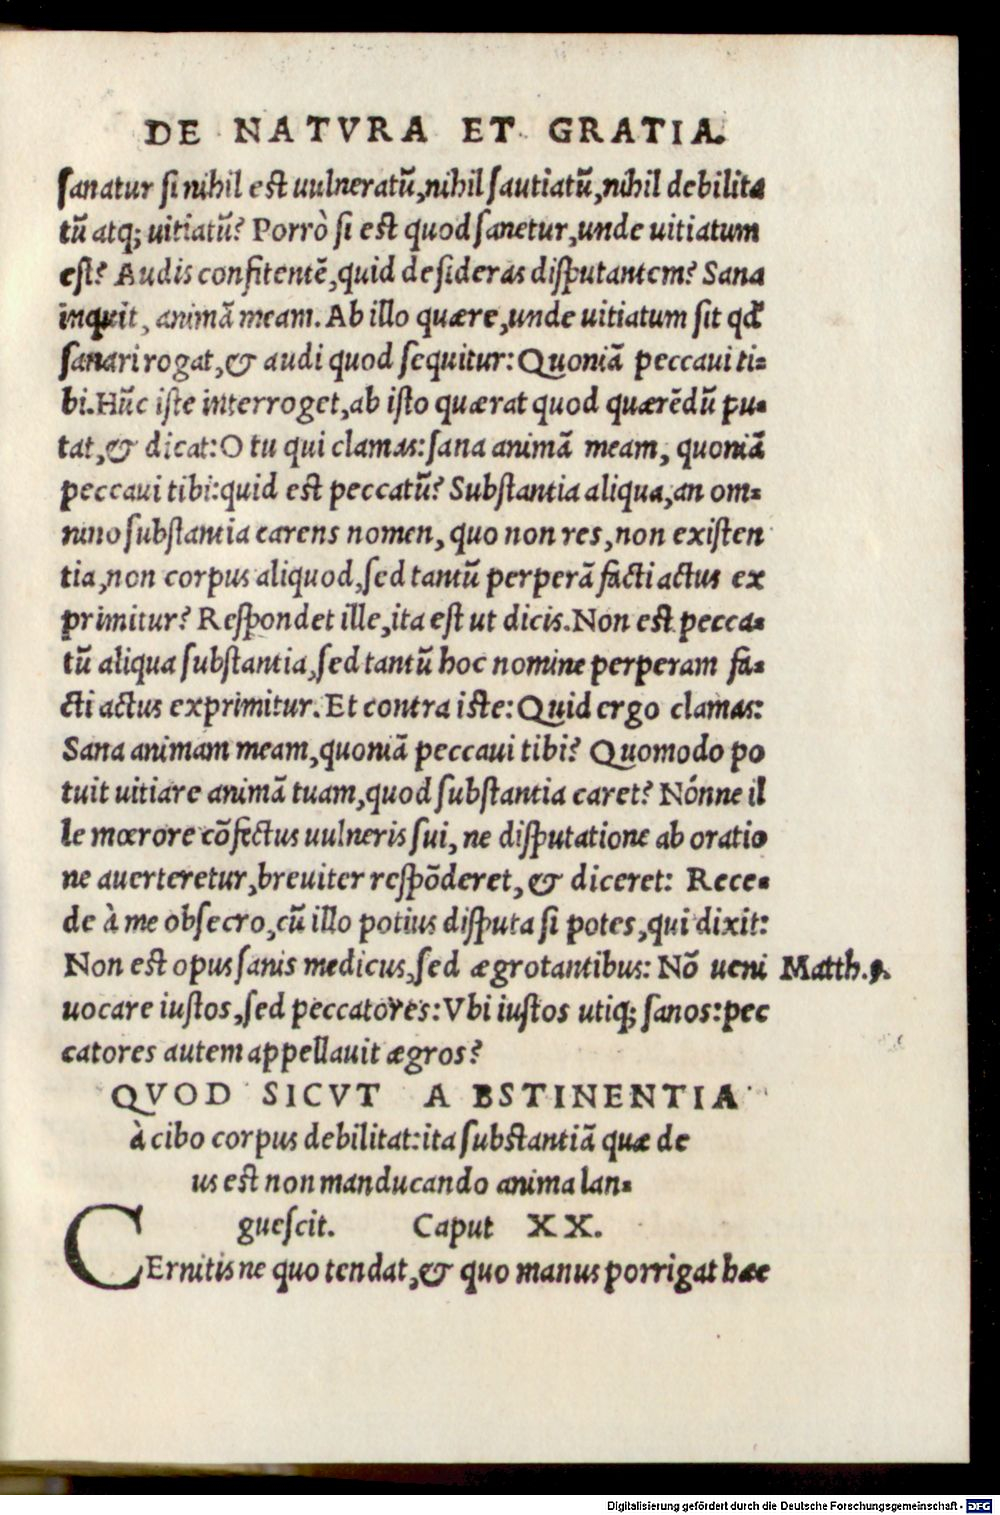 DE NATVRA ET GRATIA.
sanatur si nihil est uulneratū, nihil sautiatū, nihil debilita
tū atq; uitiatū? Porrò si est quod sanetur, unde uitiatum
est? Audis confitentē, quid desideras disputantem? Sana
inquit, animā meam. Ab illo quære, unde uitiatum sit qđ
sanari rogat, & audi quod sequitur: Quoniā peccaui ti-
bi. Hūc iste interroget, ab isto quærat quod quærēdū pu-
tat, & dicat: O tu qui clamas: sana animā meam, quoniā
peccaui tibi: quid est peccatū? Substantia aliqua, an om-
nino substantia carens nomen, quo non res, non existen
tia, non corpus aliquod, sed tantū perperā facti actus ex
primitur? Respondet ille, ita est ut dicis. Non est pecca-
tū aliqua substantia, sed tantū hoc nomine perperam fa-
cti actus exprimitur. Et contra iste: Quid ergo clamas:
Sana animam meam, quoniā peccaui tibi? Quomodo po
tuit uitiare animā tuam, quod substantia caret? Nónne il
le mœrore cōfectus uulneris sui, ne disputatione ab oratio
ne auerteretur, breuiter respōderet, & diceret: Rece-
de à me obsecro, cū illo potius disputa si potes, qui dixit:
Non est opus sanis medicus, sed ægrotantibus: Nō ueni Matth. 9.
uocare iustos, sed peccatores: Vbi iustos utiq; sanos: pec
catores autem appellauit ægros?
QVOD SICVT ABSTINENTIA
à cibo corpus debilitat: ita substantiā quæ de
us est non manducando anima lan-
guescit. Caput XX.
CErnitis ne quo tendat, & quo manus porrigat hæc
Digitalisierung gefördert durch die Deutsche Forschungsgemeinschaft - DFG